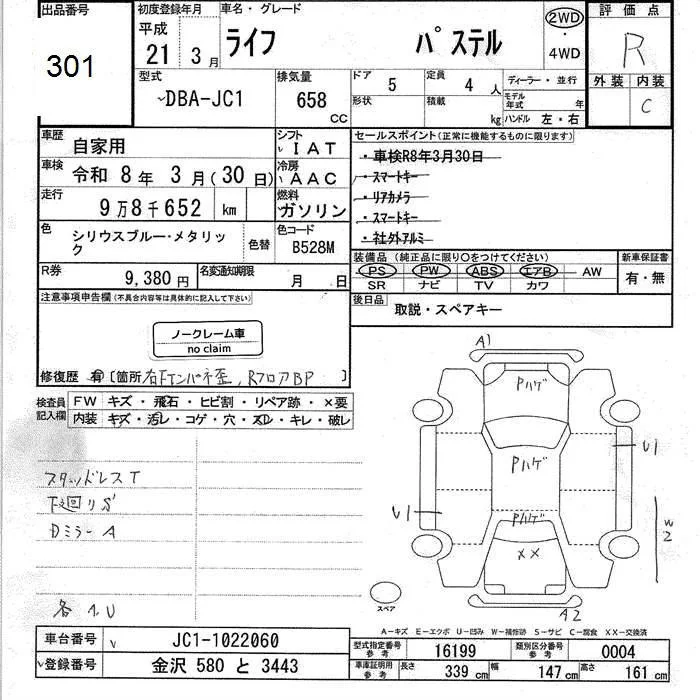 出品番号
301
初度登録年月
平成
21年 3月
車名・グレード
ライフ パステル
2WD
・
4WD
評価点
R
外装 内装
C
型式
DBA-JC1
排気量
658
CC
ドア 5
形状
定員 4人
積載 kg
ディーラー・並行
モデル年式 年
ハンドル 左・右
車歴
自家用
シフト
IAT
車検
令和 8年 3月(30日)
冷房
AAC
走行
9万8千652 km
燃料
ガソリン
色
シリウスブルー・メタリック
色替
色コード
B528M
R券
9,380円
名変通知期限
月 日
セールスポイント(正常に機能するものに限ります)
・車検R8年3月30日
・スマートキー
・リアカメラ
・スマートキー
・社外アルミ
装備品 (純正品に限り○をつけてください)
PS PW ABS エアB AW
SR ナビ TV カワ
新車保証書
有・無
後日品
取説・スペアキー
注意事項申告欄(不具合内容等は具体的に記入して下さい)
ノークレーム車
no claim
修復歴 有 〔箇所 右FインパネF歪, RフロアBP 〕
検査員
記入欄
FW キズ・飛石・ヒビ割・リペア跡・×要
内装 キズ・汚レ・コゲ・穴・スレ・キレ・破レ
スタッドレスT
下廻りS
Dミラー A
各 1, U
A1
Pハゲ
Pハゲ
U1
U1
Pハゲ
××
W2
A2
スペア
A-キズ E-エクボ U-凹み W-補修跡 S-サビ C-腐食 XX-交換済
車台番号
JC1-1022060
登録番号
金沢 580 と 3443
型式指定番号
参考
16199
類別区分番号
参考
0004
車庫証明用
参考
長さ 339 cm
幅 147 cm
高さ 161 cm